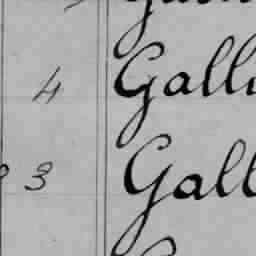 4 Galli
3 Gall